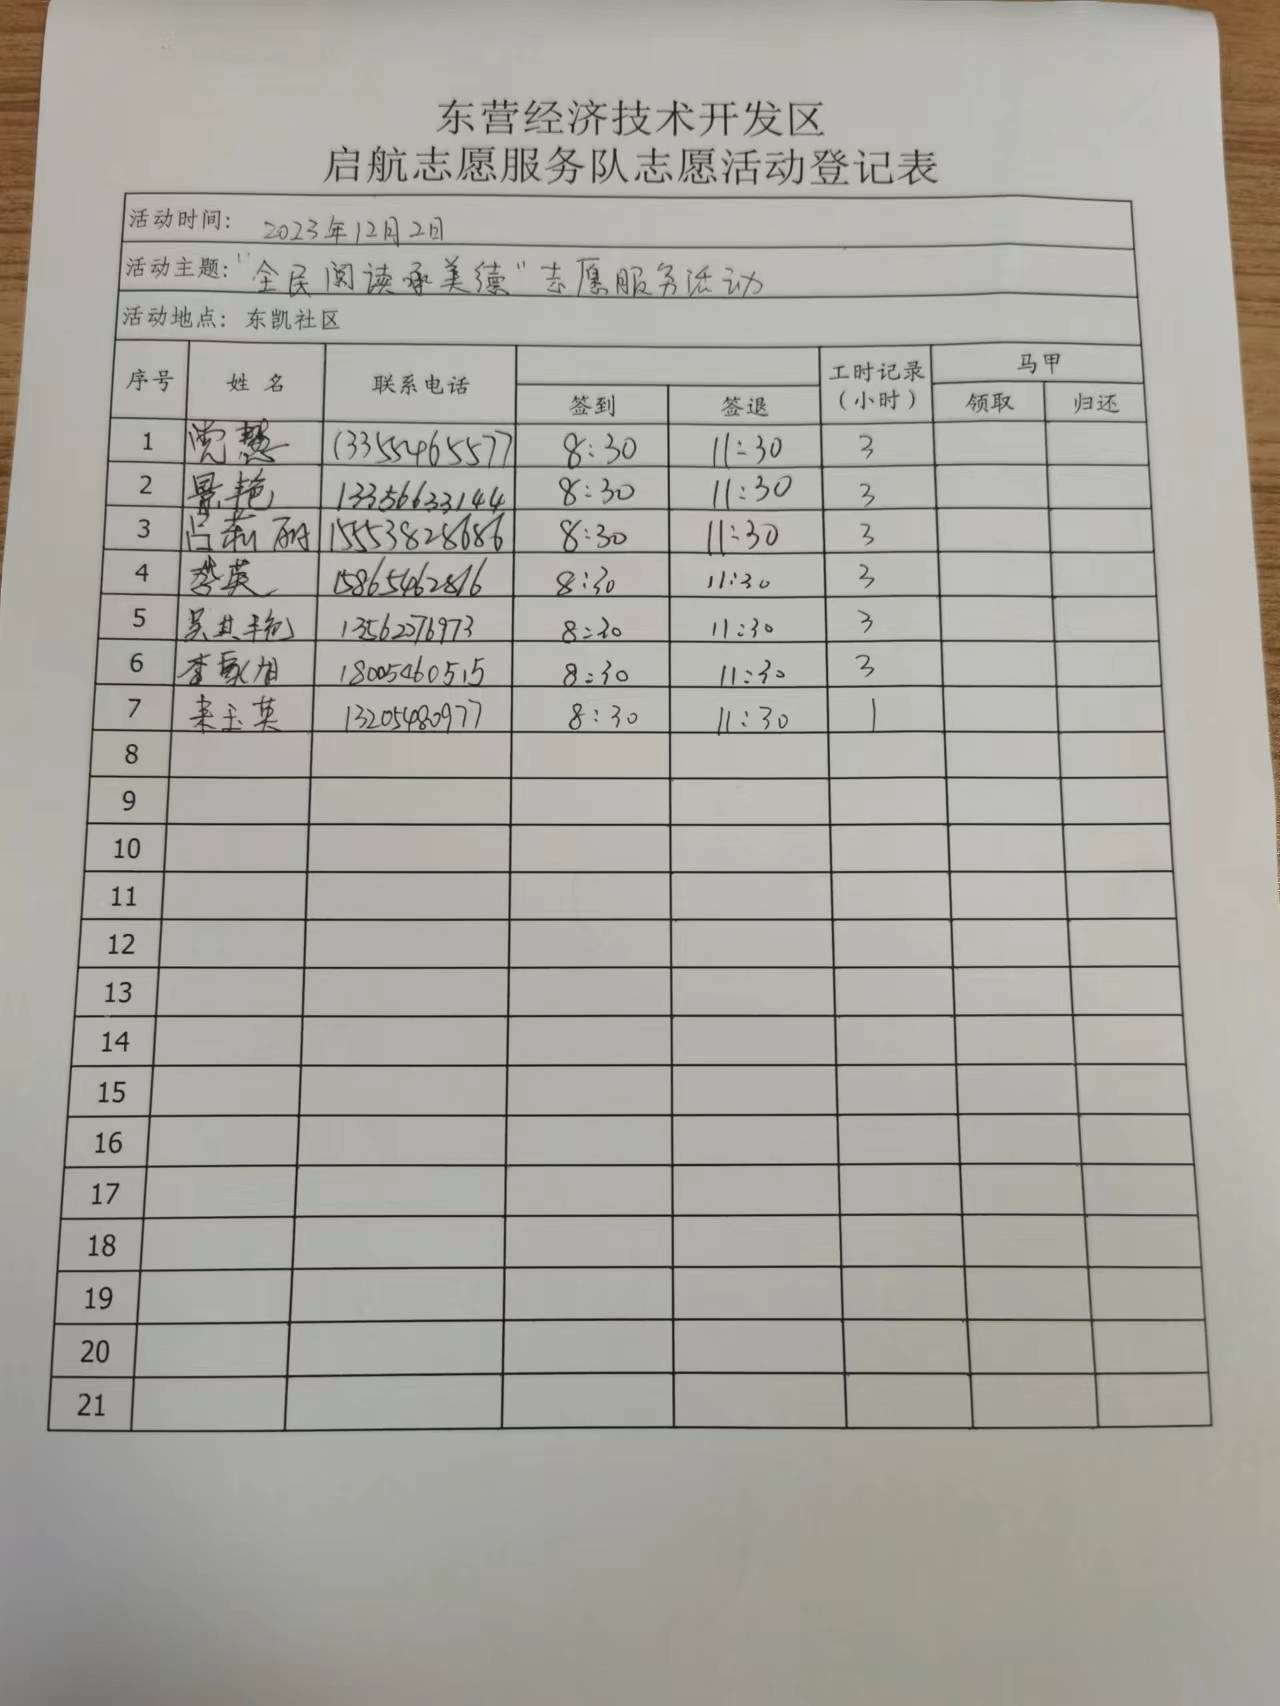 东营经济技术开发区
启航志愿服务队志愿活动登记表
活动时间: 2023年12月2日
活动主题:"全民阅读承美德"志愿服务活动
活动地点: 东凯社区
序号 姓名 联系电话 工时记录(小时) 马甲
签到 签退 领取 归还
1 党慧 13355465577 8:30 11:30 3
2 景艳 13356633144 8:30 11:30 3
3 吕莉丽 15553828686 8:30 11:30 3
4 李英 15865462816 8:30 11:30 3
5 吴其艳 13562276973 8:30 11:30 3
6 李 18005460515 8:30 11:30 3
7 来玉英 13205480977 8:30 11:30 1
8
9
10
11
12
13
14
15
16
17
18
19
20
21